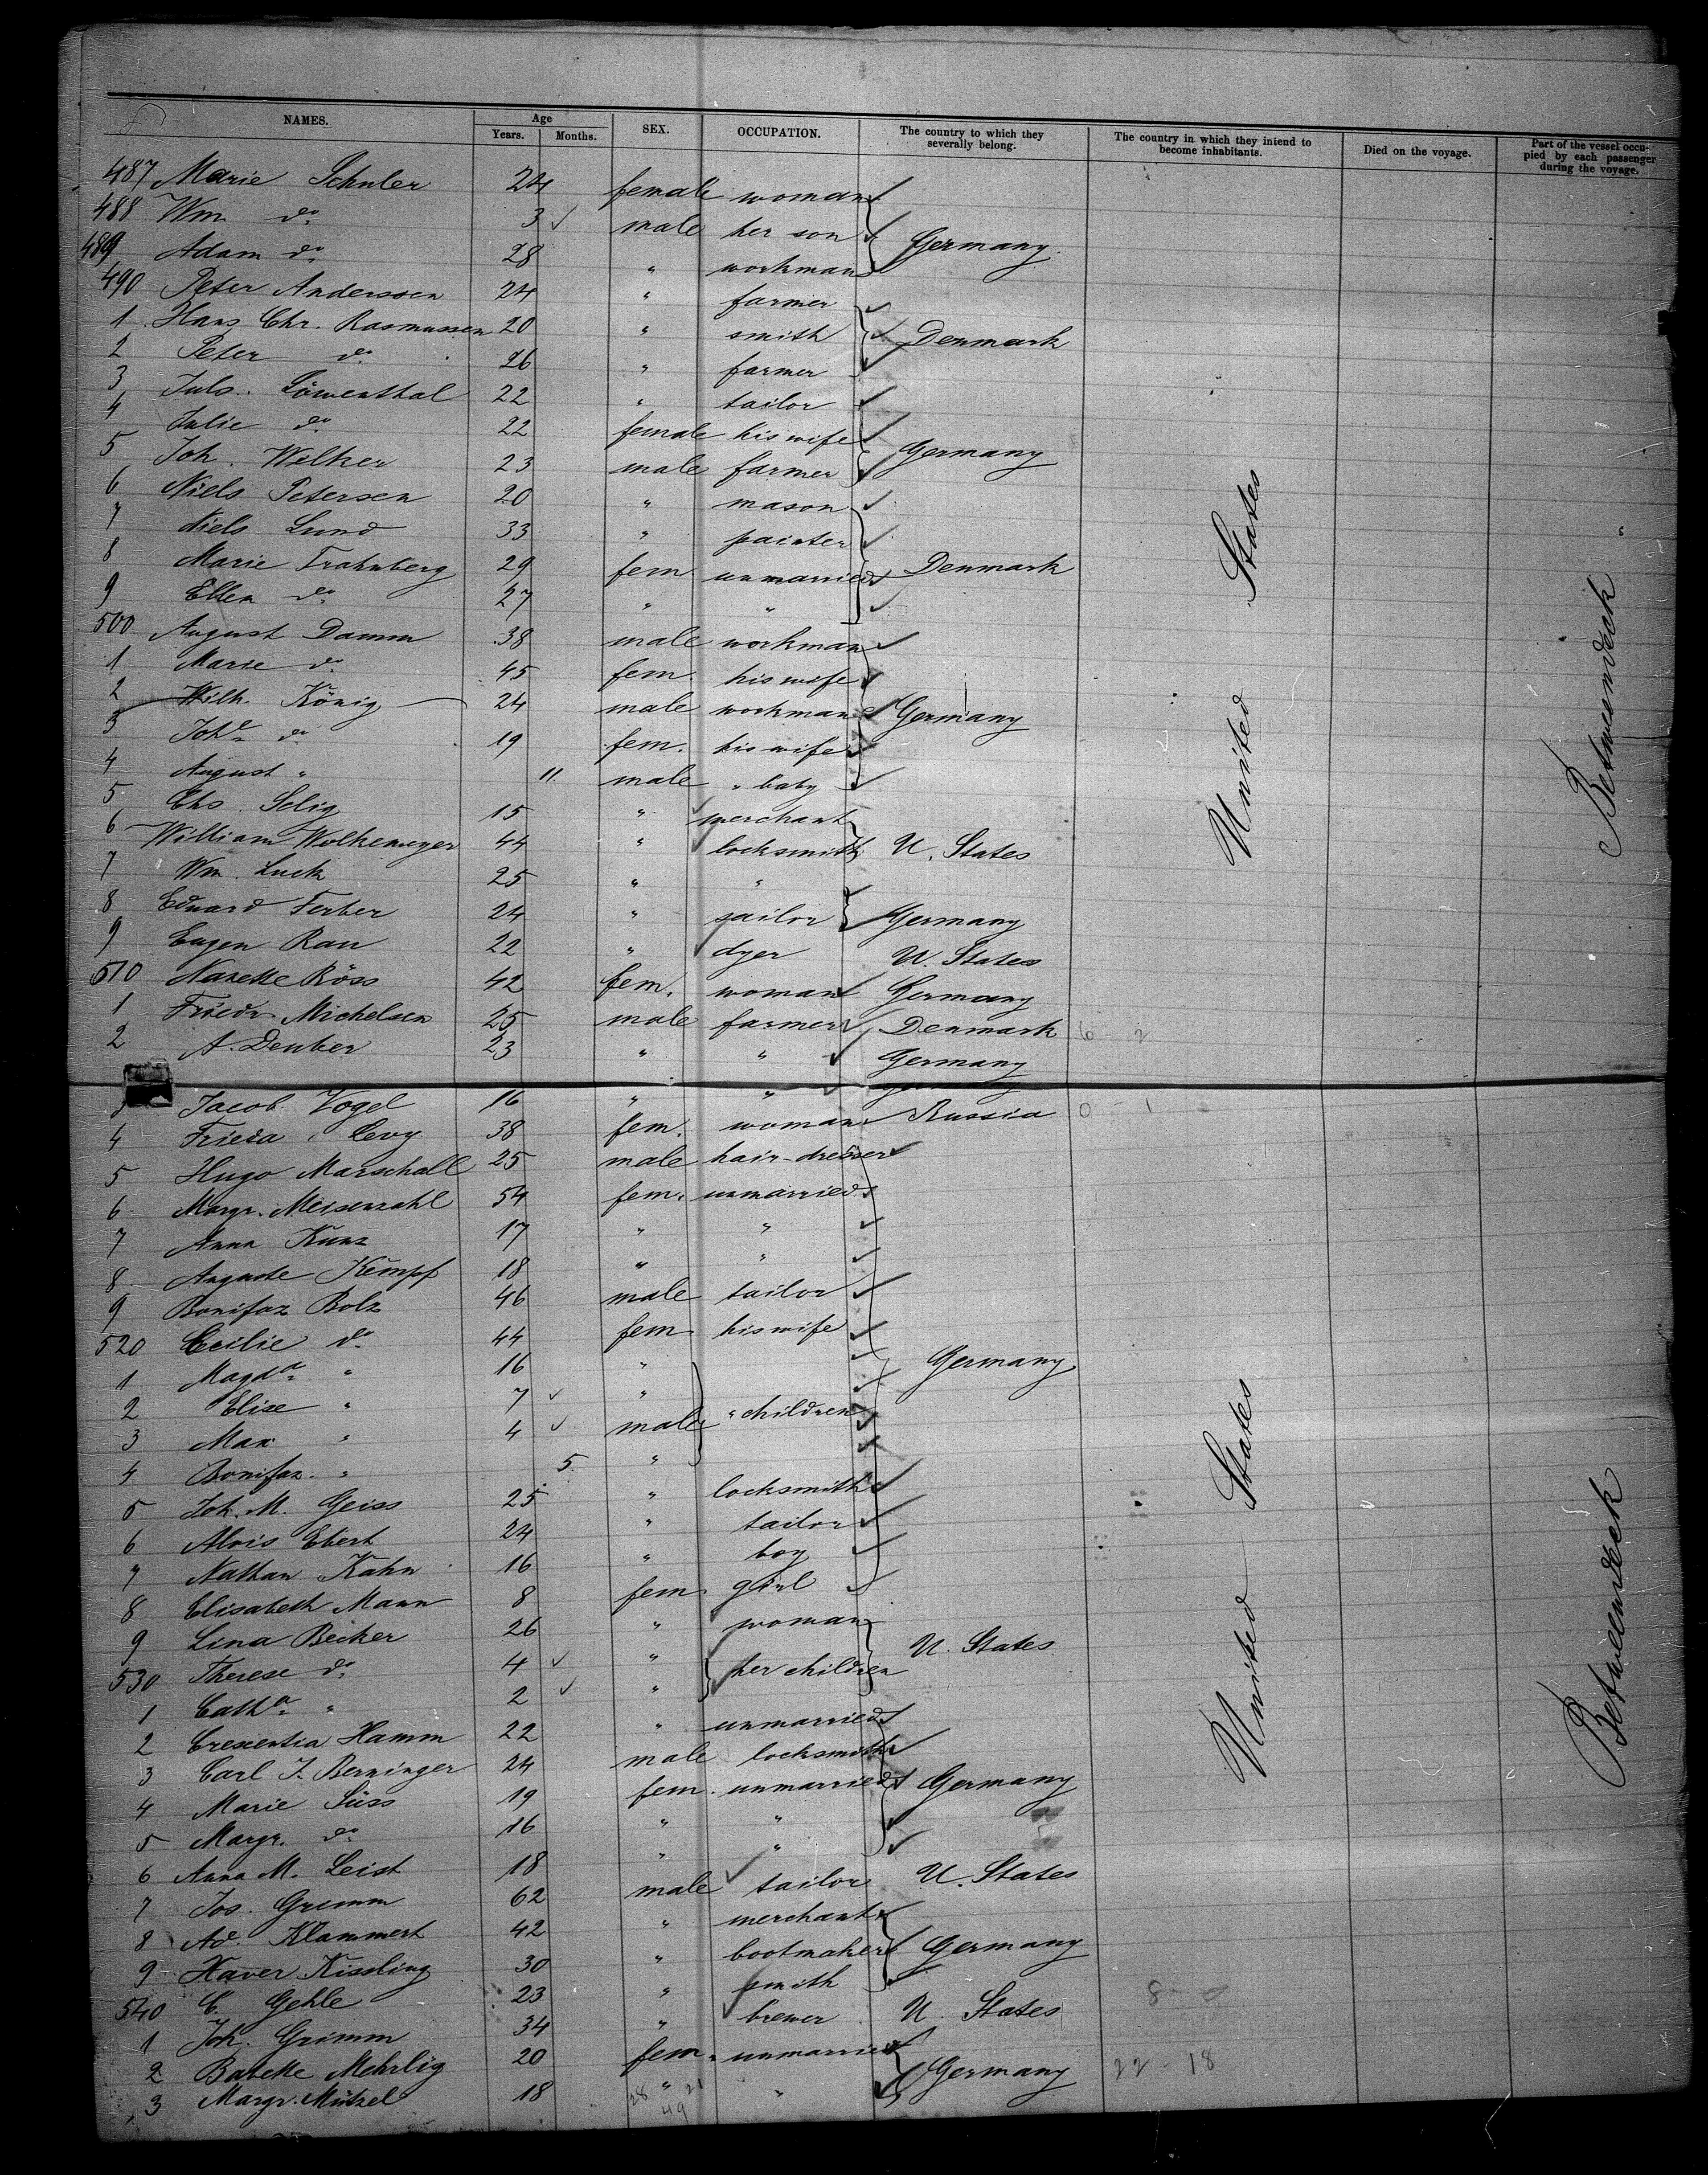 NAMES. Age Years. Months. SEX. OCCUPATION. The country to which they severally belong. The country in which they intend to become inhabitants. Died on the voyage. Part of the vessel occupied by each passenger during the voyage.
487 Marie Schuler 24 female woman
488 Wm do 3 male her son Germany
489 Adam do 28 " workman
490 Peter Anderssen 24 " farmer
1 Hans Chr. Rasmussen 20 " smith Denmark
2 Peter do 26 " farmer
3 Juls. Löwenthal 22 " tailor
4 Julie do 22 female his wife Germany
5 Joh. Welker 23 male farmer
6 Niels Petersen 20 " mason
7 Niels Lund 33 " painter
8 Marie Frahnberg 29 fem. unmarried Denmark
9 Ellen do 27 " "
500 August Damm 38 male workman
1 Marie do 45 fem. his wife
2 Wilh. König 24 male workman Germany
3 Joh. do 19 fem. his wife
4 August " 11 male " baby
5 Chs. Selig 15 " merchant
6 William Wolkemeyer 44 " locksmith U. States
7 Wm. Luck 25 " "
8 Eduard Ferber 24 " sailor Germany
9 Eugen Rau 22 " dyer U. States
510 Nanette Röss 42 fem. woman Germany
1 Friedr. Michelsen 25 male farmer Denmark 6 - 2
2 A. Deuber 23 " " Germany
Jacob Vogel 16 " " Germany
4 Frieda Levy 38 fem. woman Russia 0 - 1
5 Hugo Marschall 25 male hair-dresser
6 Margr. Meisenzahl 54 fem. unmarried
7 Anna Kunz 17 " "
8 Auguste Kempf 18 " "
9 Bonifaz Bolz 46 male tailor
520 Cecilie do 44 fem. his wife
1 Magda " 16 " Germany
2 Elise " 7 " " children
3 Max " 4 male
4 Bonifaz " 5 "
5 Joh. M. Geiss 25 " locksmith
6 Alois Ebert 24 " tailor
7 Nathan Kahn 16 " boy
8 Elisabeth Mann 8 fem. girl
9 Lina Becker 26 " woman U. States
530 Therese do 4 " her children
1 Catha " 2 "
2 Crescentia Hamm 22 " unmarried
3 Carl J. Berninger 24 male locksmith
4 Marie Süss 19 fem. unmarried Germany
5 Margr. do 16 " "
6 Anna M. Leist 18 " "
7 Jos. Grimm 62 male tailor U. States
8 Ad. Klammert 42 " merchant
9 Xaver Kissling 30 " bootmaker Germany
540 C. Gehle 23 " smith
1 Joh. Grimm 34 " brewer U. States 8 - 0
2 Babette Mehrlig 20 fem. unmarried Germany 22 - 18
3 Margr. Mützel 18 " "
28 21
49
United States
Betweendeck
United States
Betweendeck